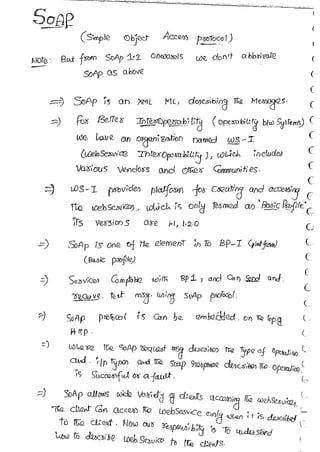 SOAP
(Simple Object Access protocol)
Note: But from SOAP 1.2 onwards we don't abbrivate
SOAP as above
=> SOAP is an XML ML, describing the Messages.
=> For Better InterOperability (operability b/w Systems)
we have an organization named WS-I
(WebService InterOperability), which includes
Various Vendors and other Communities.
=> WS-I provides platform for creating and accessing
The webServices, which is only termed as "Basic Profile"
its versions are 1.1, 1.2.0
=> SOAP is one of the element in to BP-I (platform)
(Basic profile)
=> Services Compatible with BP1, and can Send and
recieve text msg. using SOAP protocol.
=> SOAP protocol is can be embedded on the top of
Http.
=> Where the SOAP request msg describes the Type of operation
and i/p Types and the Soap response describes the operation
is Successful or a fault.
=> SOAP allows wide Variety of clients accessing the webServices.
The client Can access the webService only when it is described
to the client. Now our responsibility is to understand
how to describe web Service to the clients.